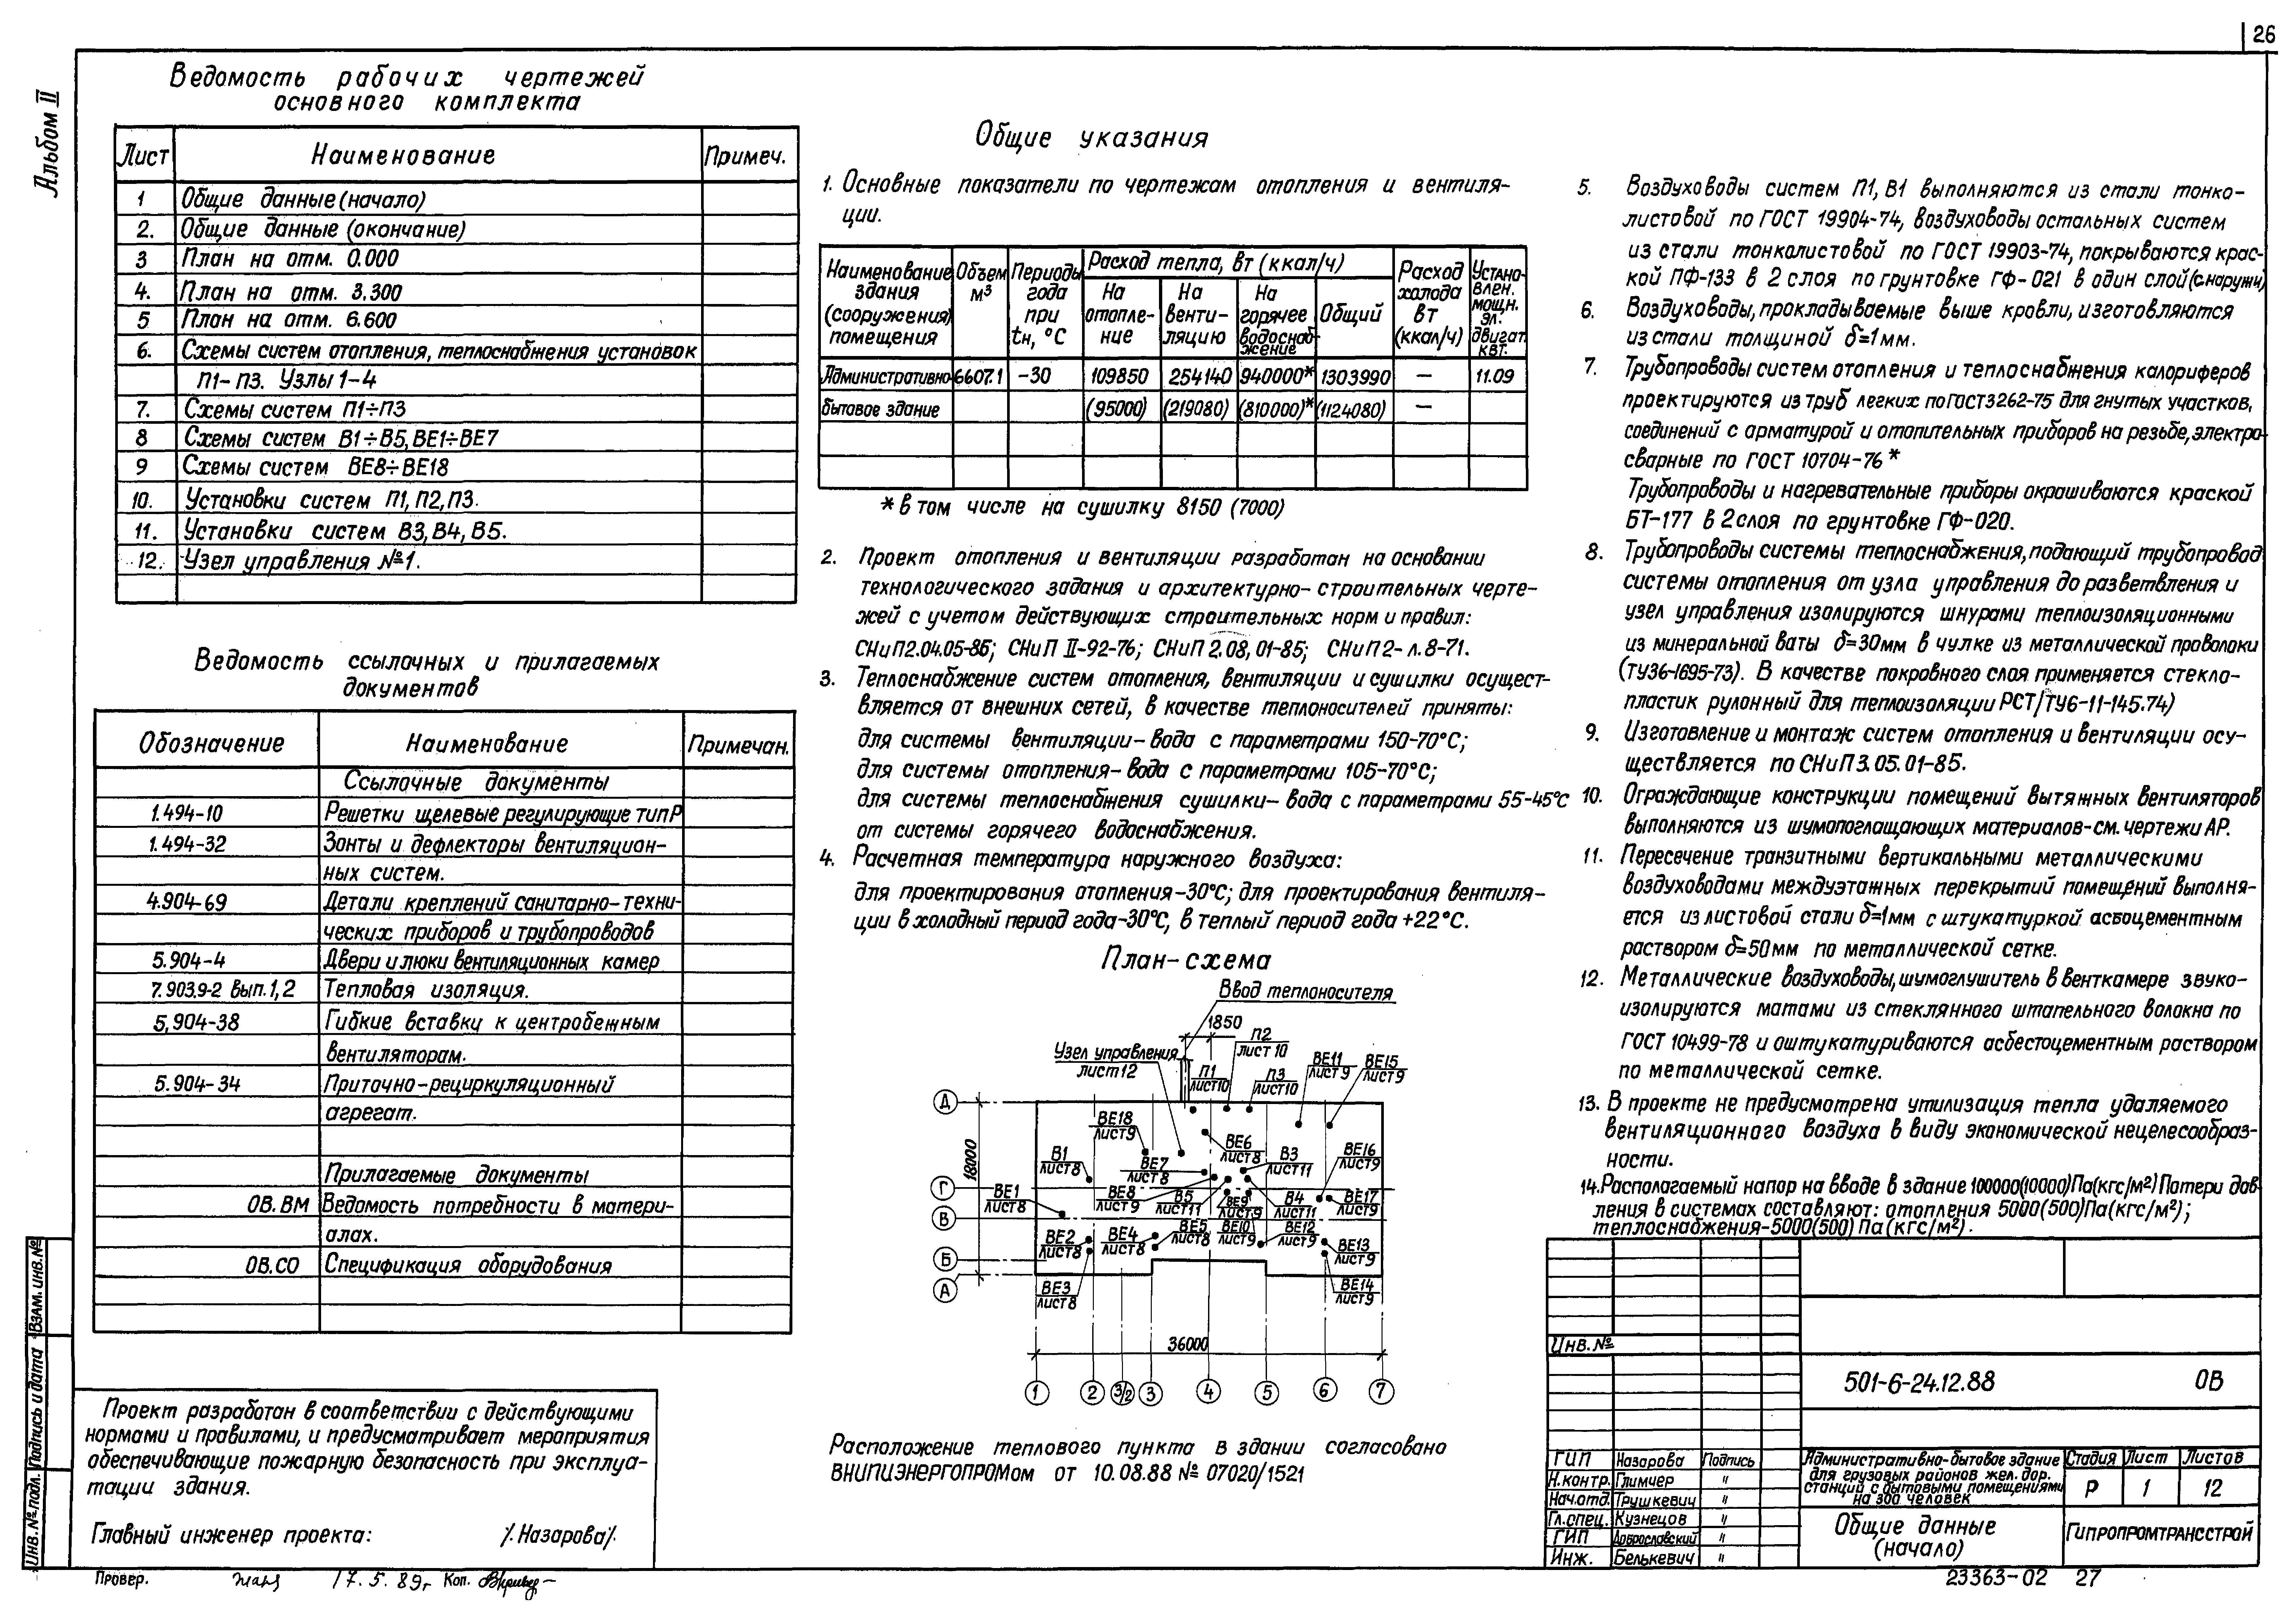 26
Альбом II
Ведомость рабочих чертежей
основного комплекта
Лист Наименование Примеч.
1 Общие данные (начало)
2. Общие данные (окончание)
3 План на отм. 0.000
4. План на отм. 3.300
5 План на отм. 6.600
6. Схемы систем отопления, теплоснабжения установок
П1-П3. Узлы 1-4
7. Схемы систем П1÷П3
8 Схемы систем В1÷В5, ВЕ1÷ВЕ7
9 Схемы систем ВЕ8÷ВЕ18
10. Установки систем П1, П2, П3.
11. Установки систем В3, В4, В5.
12. Узел управления №1.
Ведомость ссылочных и прилагаемых
документов
Обозначение Наименование Примечан.
Ссылочные документы
1.494-10 Решетки щелевые регулирующие тип Р
1.494-32 Зонты и дефлекторы вентиляцион-
ных систем.
4.904-69 Детали креплений санитарно-техни-
ческих приборов и трубопроводов
5.904-4 Двери и люки вентиляционных камер
7.903.9-2 Вып.1,2 Тепловая изоляция.
5,904-38 Гибкие вставки к центробежным
вентиляторам.
5.904-34 Приточно-рециркуляционный
агрегат.
Прилагаемые документы
ОВ.ВМ Ведомость потребности в матери-
алах.
ОВ.СО Спецификация оборудования
Проект разработан в соответствии с действующими
нормами и правилами, и предусматривает мероприятия
обеспечивающие пожарную безопасность при эксплуа-
тации здания.
Главный инженер проекта: /.Назарова/.
Провер. 17.5.89г Коп.
Взам. инв.№
Подпись и дата
Инв.№ подл.
Общие указания
1. Основные показатели по чертежам отопления и вентиля-
ции.
Наименование здания (сооружения) помещения
Объем м³
Периоды года при tн, °С
Расход тепла, вт (ккал/ч)
На отопле-ние
На венти-ляцию
На горячее водоснаб-жение
Общий
Расход холода вт (ккал/ч)
Устано-влен. мощн. эл. двигат. квт.
Административно- 6607.1 -30 109850 254140 940000* 1303990 — 11.09
бытовое здание (95000) (219080) (810000)* (1124080) —
* в том числе на сушилку 8150 (7000)
2. Проект отопления и вентиляции разработан на основании
технологического задания и архитектурно-строительных черте-
жей с учетом действующих строительных норм и правил:
СНиП2.04.05-86; СНиП II-92-76; СНиП 2.08,01-85; СНиП2-Л.8-71.
3. Теплоснабжение систем отопления, вентиляции и сушилки осущест-
вляется от внешних сетей, в качестве теплоносителей приняты:
для системы вентиляции-вода с параметрами 150-70°С;
для системы отопления-вода с параметрами 105-70°С;
для системы теплоснабжения сушилки-вода с параметрами 55-45°С
от системы горячего водоснабжения.
4. Расчетная температура наружного воздуха:
для проектирования отопления-30°С; для проектирования вентиля-
ции в холодный период года-30°С, в теплый период года +22°С.
План-схема
Ввод теплоносителя
1850
Узел управления
лист12
П2
лист 10
П1
лист10
П3
лист10
ВЕ11
лист9
ВЕ15
лист9
Д
ВЕ18
лист9
ВЕ6
лист8
18000
В1
лист8
ВЕ7
лист8
В3
лист11
ВЕ16
лист9
Г
ВЕ1
лист8
ВЕ8
лист9
В5
лист11
ВЕ9
лист9
В4
лист11
ВЕ17
лист9
В
ВЕ2
лист8
ВЕ4
лист8
ВЕ5
лист8
ВЕ10
лист9
ВЕ12
лист9
ВЕ13
лист9
Б
А
ВЕ3
лист8
ВЕ14
лист9
36000
1 2 3/2 3 4 5 6 7
Расположение теплового пункта в здании согласовано
ВНИПИЭНЕРГОПРОМом от 10.08.88 № 07020/1521
5. Воздуховоды систем П1, В1 выполняются из стали тонко-
листовой по ГОСТ 19904-74, воздуховоды остальных систем
из стали тонколистовой по ГОСТ 19903-74, покрываются крас-
кой ПФ-133 в 2 слоя по грунтовке ГФ-021 в один слой(снаружи)
6. Воздуховоды, прокладываемые выше кровли, изготовляются
из стали толщиной δ=1мм.
7. Трубопроводы систем отопления и теплоснабжения калориферов
проектируются из труб легких по ГОСТ3262-75 для гнутых участков,
соединений с арматурой и отопительных приборов на резьбе, электро-
сварные по ГОСТ 10704-76*
Трубопроводы и нагревательные приборы окрашиваются краской
БТ-177 в 2слоя по грунтовке ГФ-020.
8. Трубопроводы системы теплоснабжения, подающий трубопровод
системы отопления от узла управления до разветвления и
узел управления изолируются шнурами теплоизоляционными
из минеральной ваты δ=30мм в чулке из металлической проволоки
(ТУ36-1695-73). В качестве покровного слоя применяется стекло-
пластик рулонный для теплоизоляции РСТ/ТУ6-11-145.74)
9. Изготовление и монтаж систем отопления и вентиляции осу-
ществляется по СНиП 3.05.01-85.
10. Ограждающие конструкции помещений вытяжных вентиляторов
выполняются из шумопоглащающих материалов-см. чертежи АР.
11. Пересечение транзитными вертикальными металлическими
воздуховодами междуэтажных перекрытий помещений выполня-
ется из листовой стали δ=1мм с штукатуркой асбоцементным
раствором δ=50мм по металлической сетке.
12. Металлические воздуховоды, шумоглушитель в венткамере звуко-
изолируются матами из стеклянного штапельного волокна по
ГОСТ 10499-78 и оштукатуриваются асбестоцементным раствором
по металлической сетке.
13. В проекте не предусмотрена утилизация тепла удаляемого
вентиляционного воздуха в виду экономической нецелесообраз-
ности.
14. Располагаемый напор на вводе в здание 100000(10000)Па(кгс/м²) Потери дав-
ления в системах составляют: отопления 5000(500)Па(кгс/м²);
теплоснабжения-5000(500) Па(кгс/м²).
Инв.№
501-6-24.12.88 ОВ
ГИП Назарова Подпись
Н.контр. Глимчер "
Нач.отд. Трушкевич "
Гл.спец. Кузнецов "
ГИП Доброславский "
Инж. Белькевич "
Административно-бытовое здание
для грузовых районов жел. дор.
станций с бытовыми помещениями
на 300 человек
Стадия Лист Листов
Р 1 12
Общие данные
(начало)
ГИПРОПРОМТРАНССТРОЙ
23363-02 27